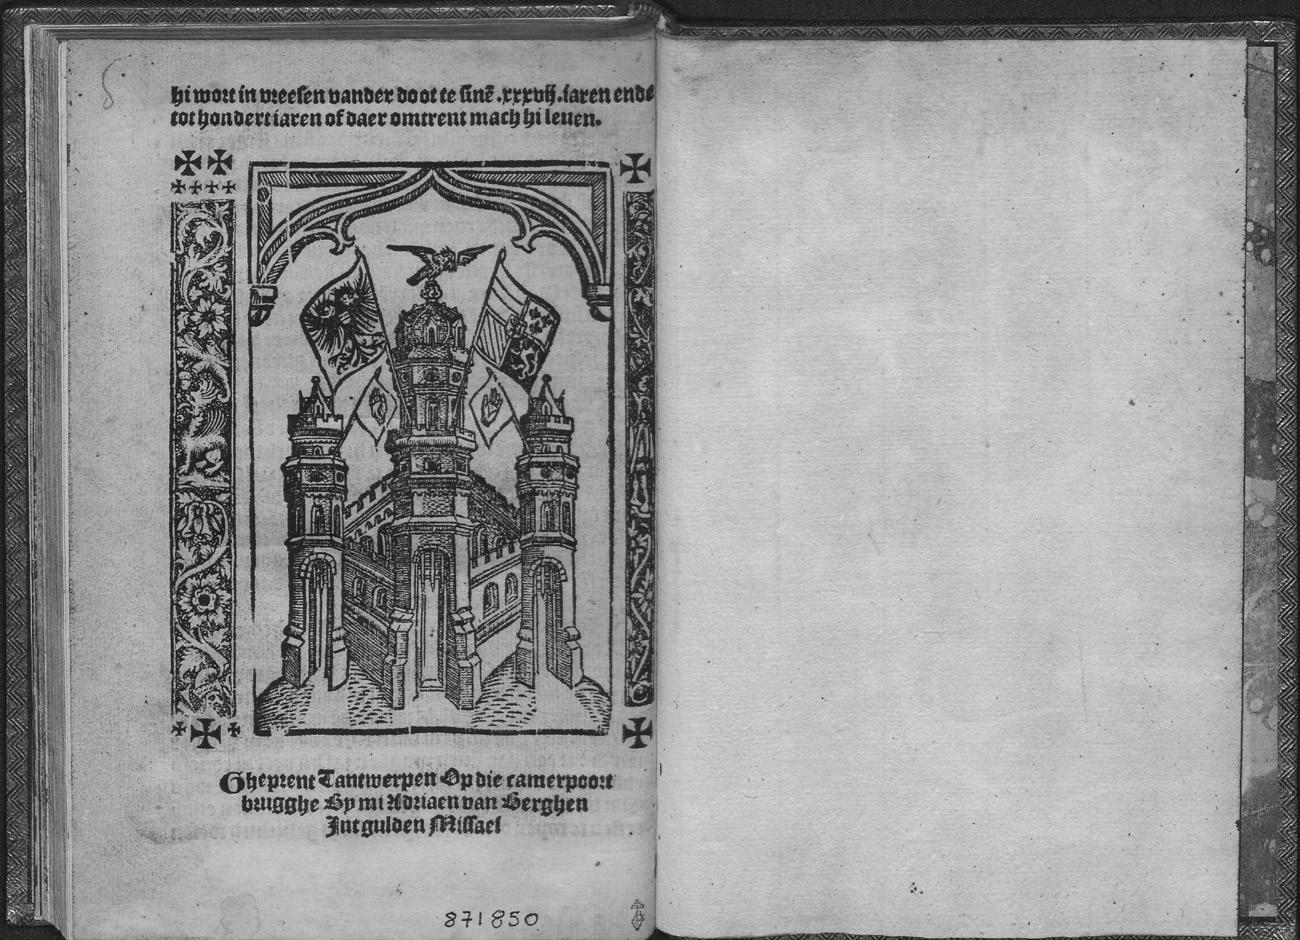 hi wort in vreesen vander doot te sinẽ .xxxvij. iaren ende
tot hondert iaren of daer omtrent mach hi leuen.
Gheprent Tantwerpen Op die camerpoort
brugghe By mi Adriaen van Berghen
Int gulden Missael
871850